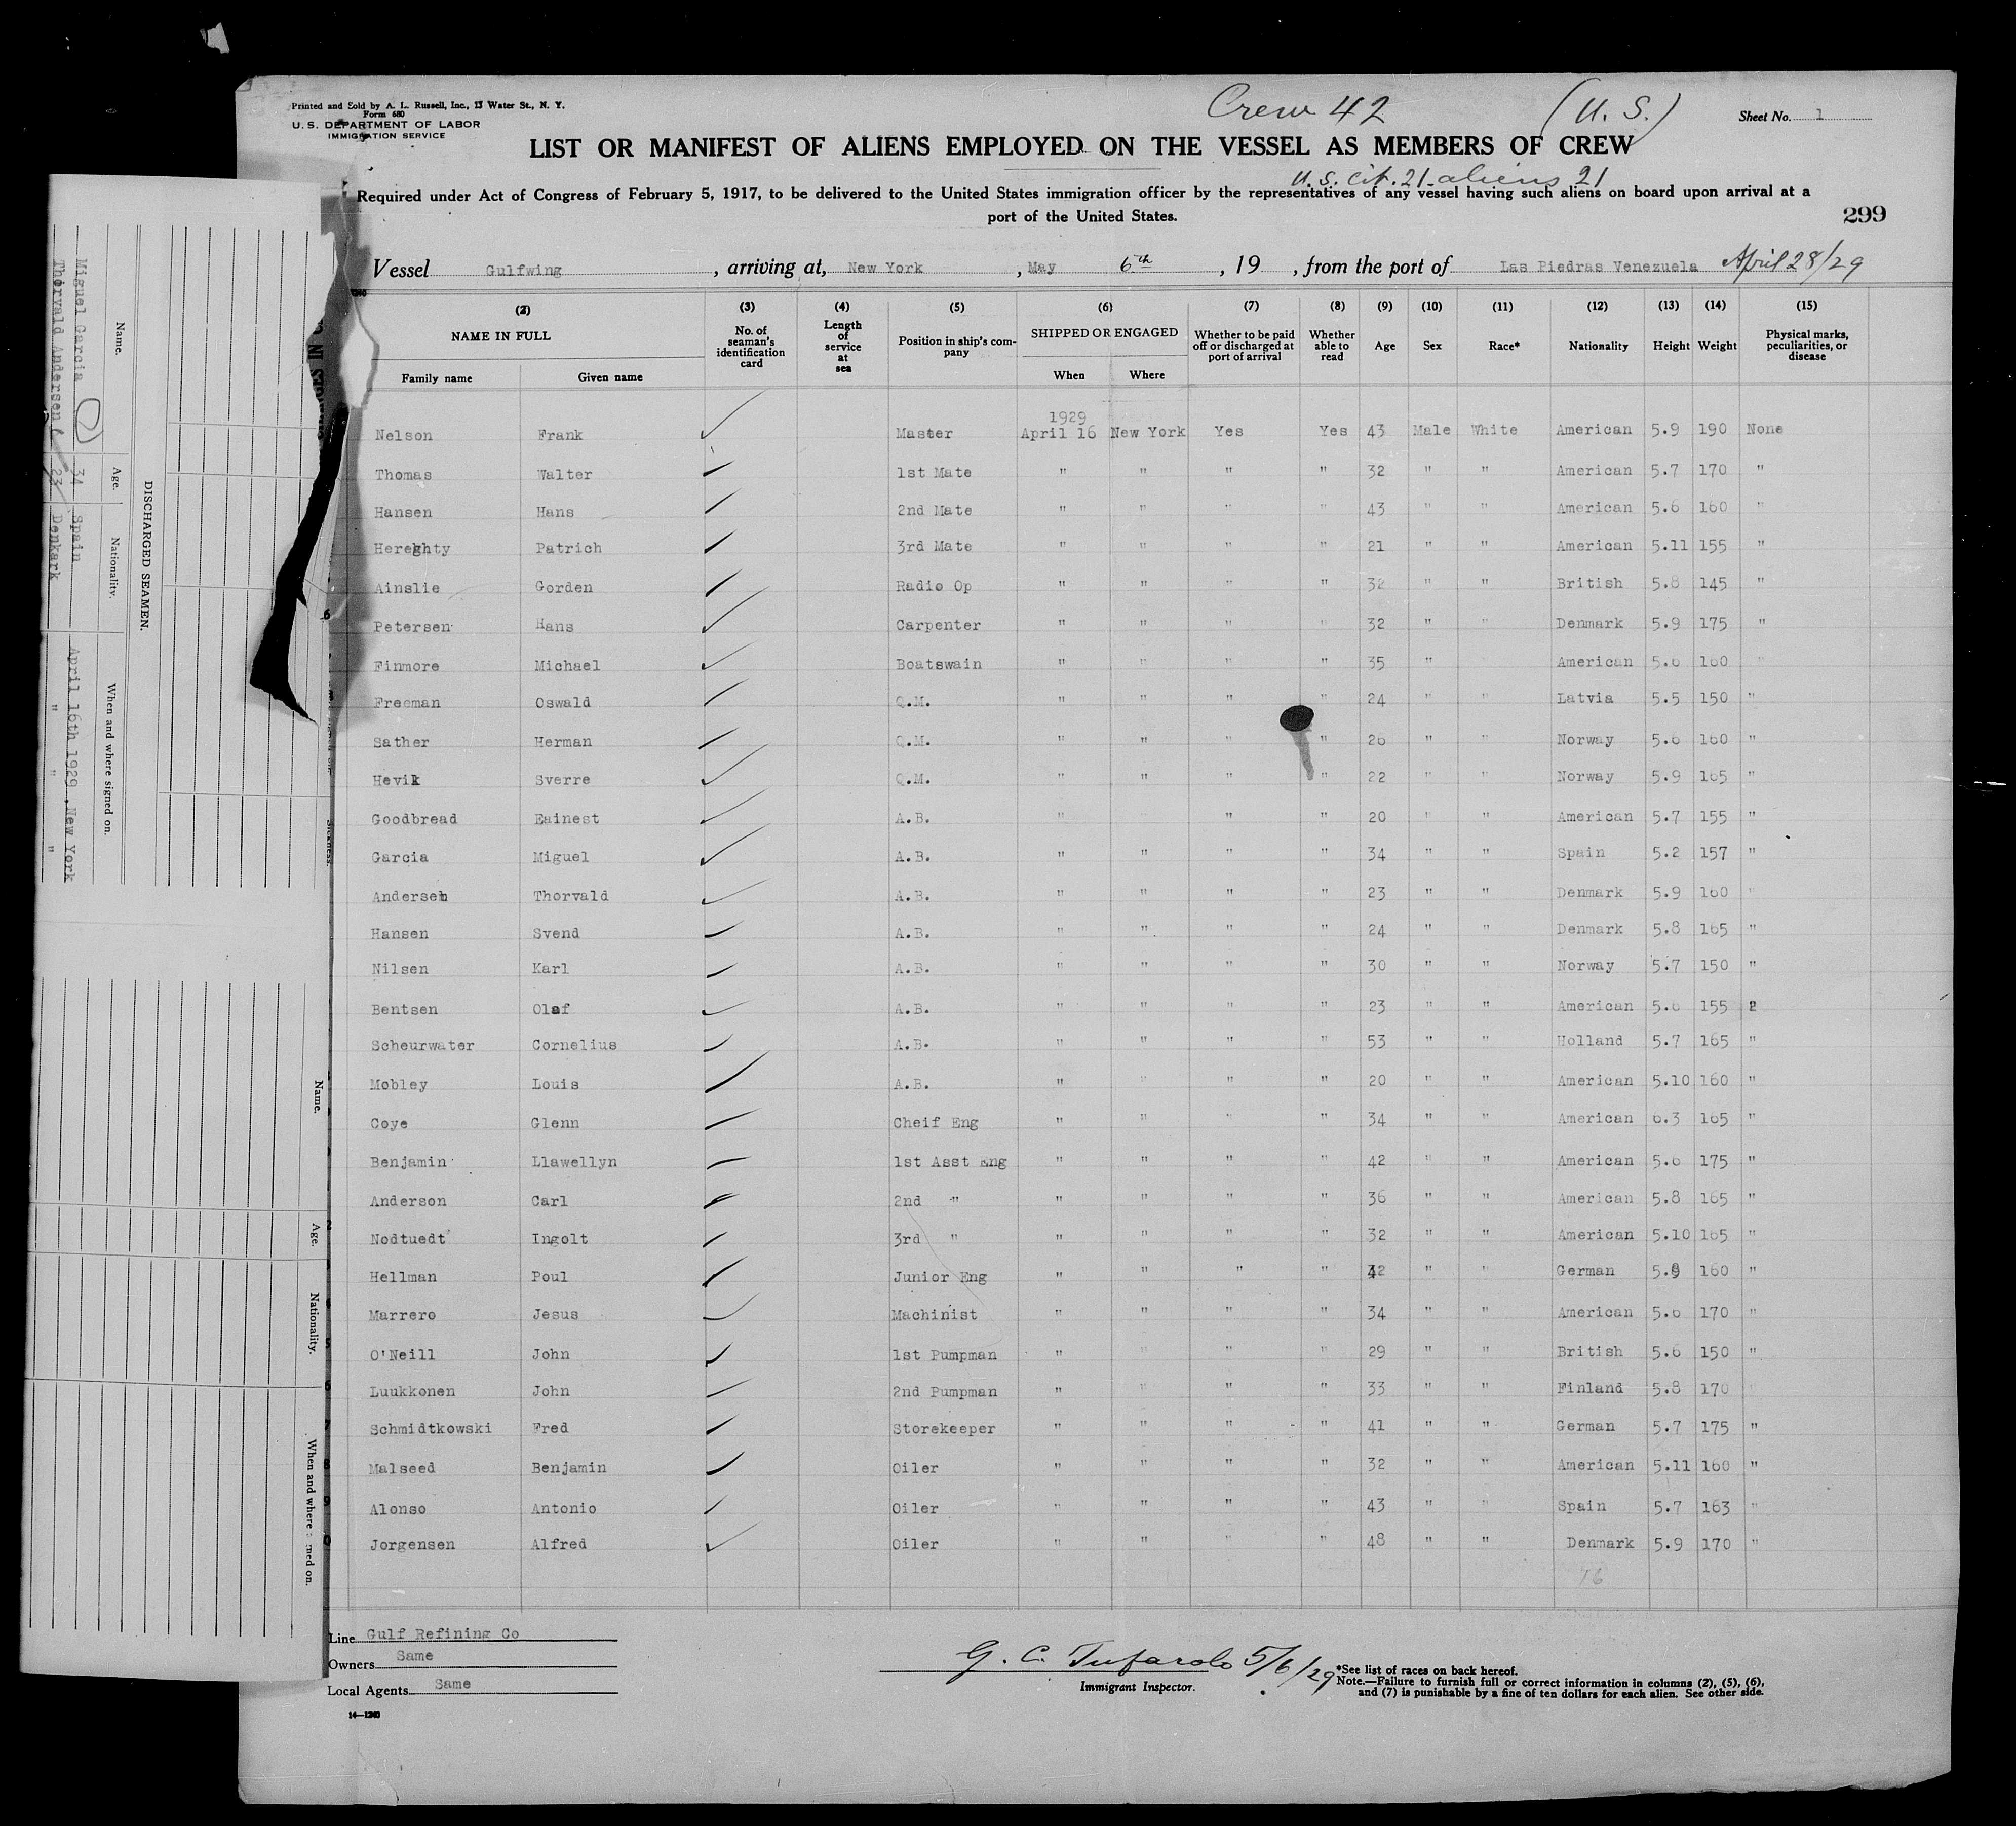 Printed and Sold by A. L. Russell, Inc., 13 Water St., N. Y.
Form 680
U. S. DEPARTMENT OF LABOR
IMMIGRATION SERVICE
Crew 42 (U. S.)
Sheet No. 1
LIST OR MANIFEST OF ALIENS EMPLOYED ON THE VESSEL AS MEMBERS OF CREW
U.S. cit. 21 aliens 21
Required under Act of Congress of February 5, 1917, to be delivered to the United States immigration officer by the representatives of any vessel having such aliens on board upon arrival at a
port of the United States.
299
Vessel Gulfwing, arriving at, New York, May 6th, 19 , from the port of Las Piedras Venezuela April 28/29
(2) (3) (4) (5) (6) (7) (8) (9) (10) (11) (12) (13) (14) (15)
NAME IN FULL No. of seaman's identification card Length of service at sea Position in ship's company SHIPPED OR ENGAGED Whether to be paid off or discharged at port of arrival Whether able to read Age Sex Race* Nationality Height Weight Physical marks, peculiarities, or disease
Family name Given name When Where
1929
Nelson Frank Master April 16 New York Yes Yes 43 Male White American 5.9 190 None
Thomas Walter 1st Mate " " " " 32 " " American 5.7 170 "
Hansen Hans 2nd Mate " " " " 43 " " American 5.6 160 "
Hereghty Patrich 3rd Mate " " " " 21 " " American 5.11 155 "
Ainslie Gorden Radio Op " " " " 32 " " British 5.8 145 "
Petersen Hans Carpenter " " " " 32 " " Denmark 5.9 175 "
Finmore Michael Boatswain " " " " 35 " American 5.6 160 "
Freeman Oswald Q.M. " " " " 24 " " Latvia 5.5 150 "
Sather Herman Q.M. " " " " 26 " " Norway 5.6 160 "
Hevik Sverre Q.M. " " " " 22 " " Norway 5.9 165 "
Goodbread Eainest A.B. " " " 20 " " American 5.7 155 "
Garcia Miguel A.B. " " " " 34 " " Spain 5.2 157 "
Andersen Thorvald A.B. " " " " 23 " " Denmark 5.9 160 "
Hansen Svend A.B. " " " " 24 " " Denmark 5.8 165 "
Nilsen Karl A.B. " " " " 30 " " Norway 5.7 150 "
Bentsen Olaf A.B. " " " " 23 " " American 5.6 155
Scheurwater Cornelius A.B. " " " " 53 " " Holland 5.7 165 "
Mobley Louis A.B. " " " " 20 " " American 5.10 160 "
Coye Glenn Cheif Eng " " " " 34 " " American 6.3 165 "
Benjamin Llawellyn 1st Asst Eng " " " " 42 " " American 5.6 175 "
Anderson Carl 2nd " " " " " 36 " " American 5.8 165 "
Nodtuedt Ingolt 3rd " " " " " 32 " " American 5.10 165 "
Hellman Poul Junior Eng " " " " 42 " " German 5.9 160 "
Marrero Jesus Machinist " " " " 34 " " American 5.6 170 "
O'Neill John 1st Pumpman " " " " 29 " " British 5.6 150 "
Luukkonen John 2nd Pumpman " " " " 33 " " Finland 5.8 170
Schmidtkowski Fred Storekeeper " " " " 41 " " German 5.7 175 "
Malseed Benjamin Oiler " " " " 32 " " American 5.11 160 "
Alonso Antonio Oiler " " " " 43 " " Spain 5.7 163 "
Jorgensen Alfred Oiler " " " " 48 " " Denmark 5.9 170 "
16
Line Gulf Refining Co
Owners Same
Local Agents Same
14—1240
G. C. Tufarolo 5/6/29
Immigrant Inspector.
*See list of races on back hereof.
Note.—Failure to furnish full or correct information in columns (2), (5), (6),
and (7) is punishable by a fine of ten dollars for each alien. See other side.
DISCHARGED SEAMEN.
Name. Age. Nationality. When and where signed on.
Miguel Garcia 34 Spain April 16th 1929 .New York
Thorvald Andersen 23 Denkark " " "
Name. Age. Nationality. When and where signed on.